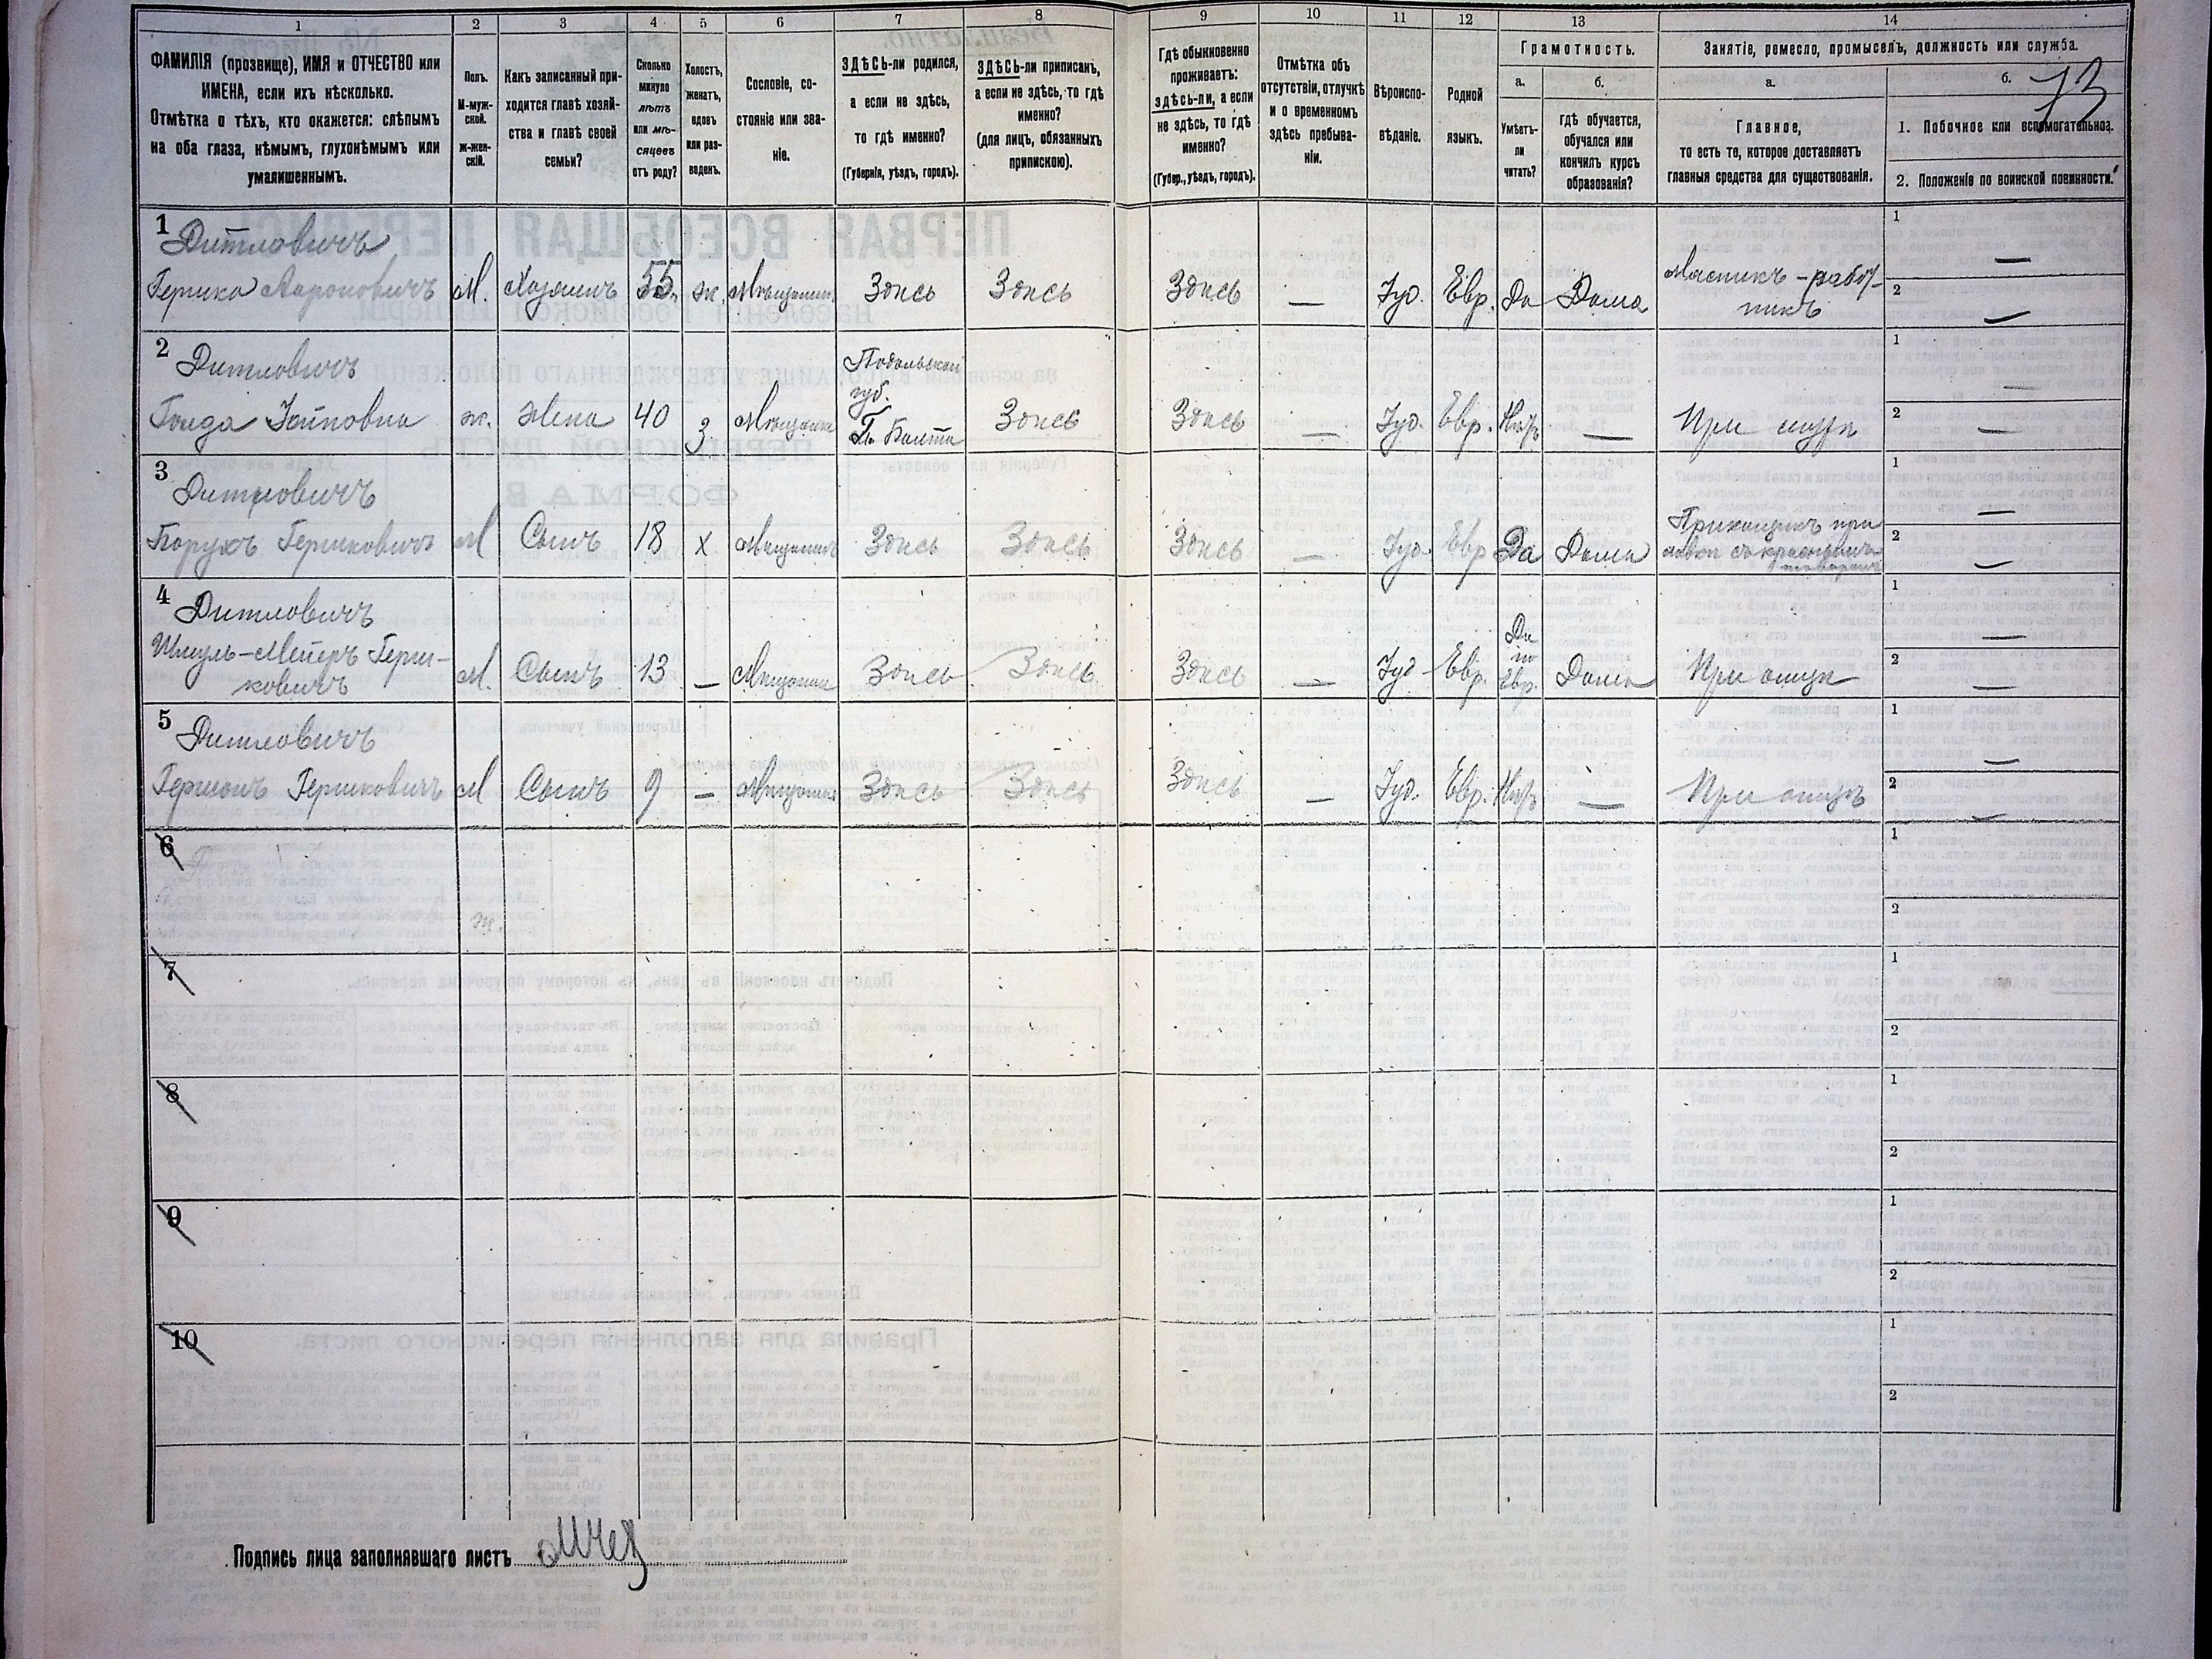 1 2 3 4 5 6 7 8 9 10 11 12 13 14
ФАМИЛІЯ (прозвище), ИМЯ и ОТЧЕСТВО или
ИМЕНА, если ихъ нѣсколько.
Отмѣтка о тѣхъ, кто окажется: слѣпымъ
на оба глаза, нѣмымъ, глухонѣмымъ или
умалишеннымъ.
Полъ.
М-муж-
ской.
ж-жен-
скій.
Какъ записанный при-
ходится главѣ хозяй-
ства и главѣ своей
семьи?
Сколько
минуло
лѣтъ
или мѣ-
сяцевъ
отъ роду?
Холостъ,
женатъ,
вдовъ
или раз-
веденъ.
Сословіе, со-
стояніе или зва-
ніе.
ЗДѢСЬ-ли родился,
а если не здѣсь,
то гдѣ именно?
(Губернія, уѣздъ, городъ).
ЗДѢСЬ-ли приписанъ,
а если не здѣсь, то гдѣ
именно?
(для лицъ, обязанныхъ
припискою).
Гдѣ обыкновенно
проживаетъ:
здѣсь-ли, а если
не здѣсь, то гдѣ
именно?
(Губер., уѣздъ, городъ).
Отмѣтка объ
отсутствіи, отлучкѣ
и о временномъ
здѣсь пребыва-
ніи.
Вѣроиспо-
вѣданіе.
Родной
языкъ.
Грамотность.
а. б.
Умѣетъ-
ли
читать?
гдѣ обучается,
обучался или
кончилъ курсъ
образованія?
Занятіе, ремесло, промыселъ, должность или служба.
а. б. 73
Главное,
то есть то, которое доставляетъ
главныя средства для существованія.
1. Побочное или вспомогательное.
2. Положеніе по воинской повинности.
1 Дитловичъ 1 —
Гершко Аароновичъ М. Хозяинъ 55 ж. Мѣщанин. Здѣсь Здѣсь Здѣсь — Іуд. Евр. Да Дома
никъ 2 —
2 Дитловичъ Подольской 1 —
губ.
ж. Жена 40 З Мѣщанка Г. Балта Здѣсь Здѣсь — Іуд. Евр. Нѣтъ — При мужѣ 2 —
3 Дитловичъ 1 —
Борухъ Гершковичъ М Сынъ 18 Х Мѣщанинъ Здѣсь Здѣсь Здѣсь — Іуд. Евр Да Дома Приказчикъ при 2 —
лавкѣ съ краснымъ
товаромъ
4 Дитловичъ 1 —
Шмуль-Мейеръ Герш-
ковичъ М. Сынъ 13 — Мѣщанин Здѣсь Здѣсь Здѣсь — Іуд Евр. Да по Евр. Дома При отцѣ 2 —
5 Дитловичъ 1 —
Гершонъ Гершковичъ М Сынъ 9 — Мѣщанин Здѣсь Здѣсь Здѣсь — Іуд. Евр. Нѣтъ — При отцѣ 2 —
6 1
ж. 2
7 1
2
8 1
2
9 1
2
10 1
2
Подпись лица заполнявшаго листъ